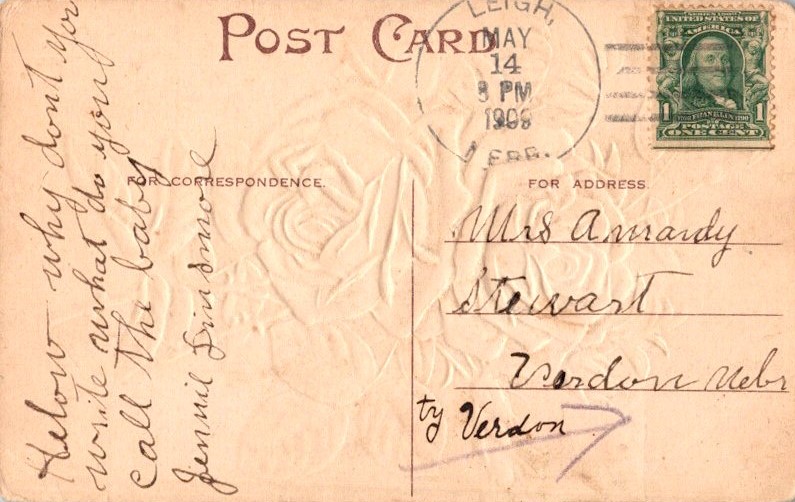 POST CARD
LEIGH,
MAY
14
8 PM
1909
NEBR.
SERIES 1902
UNITED STATES OF
AMERICA
1 FRANKLIN 1
POSTAGE
ONE CENT
FOR CORRESPONDENCE.
Helow why dont you
write what do you
call the baby
Jennie
FOR ADDRESS.
Mrs Amandy
Stewart
Verdon Nebr
try Verdon